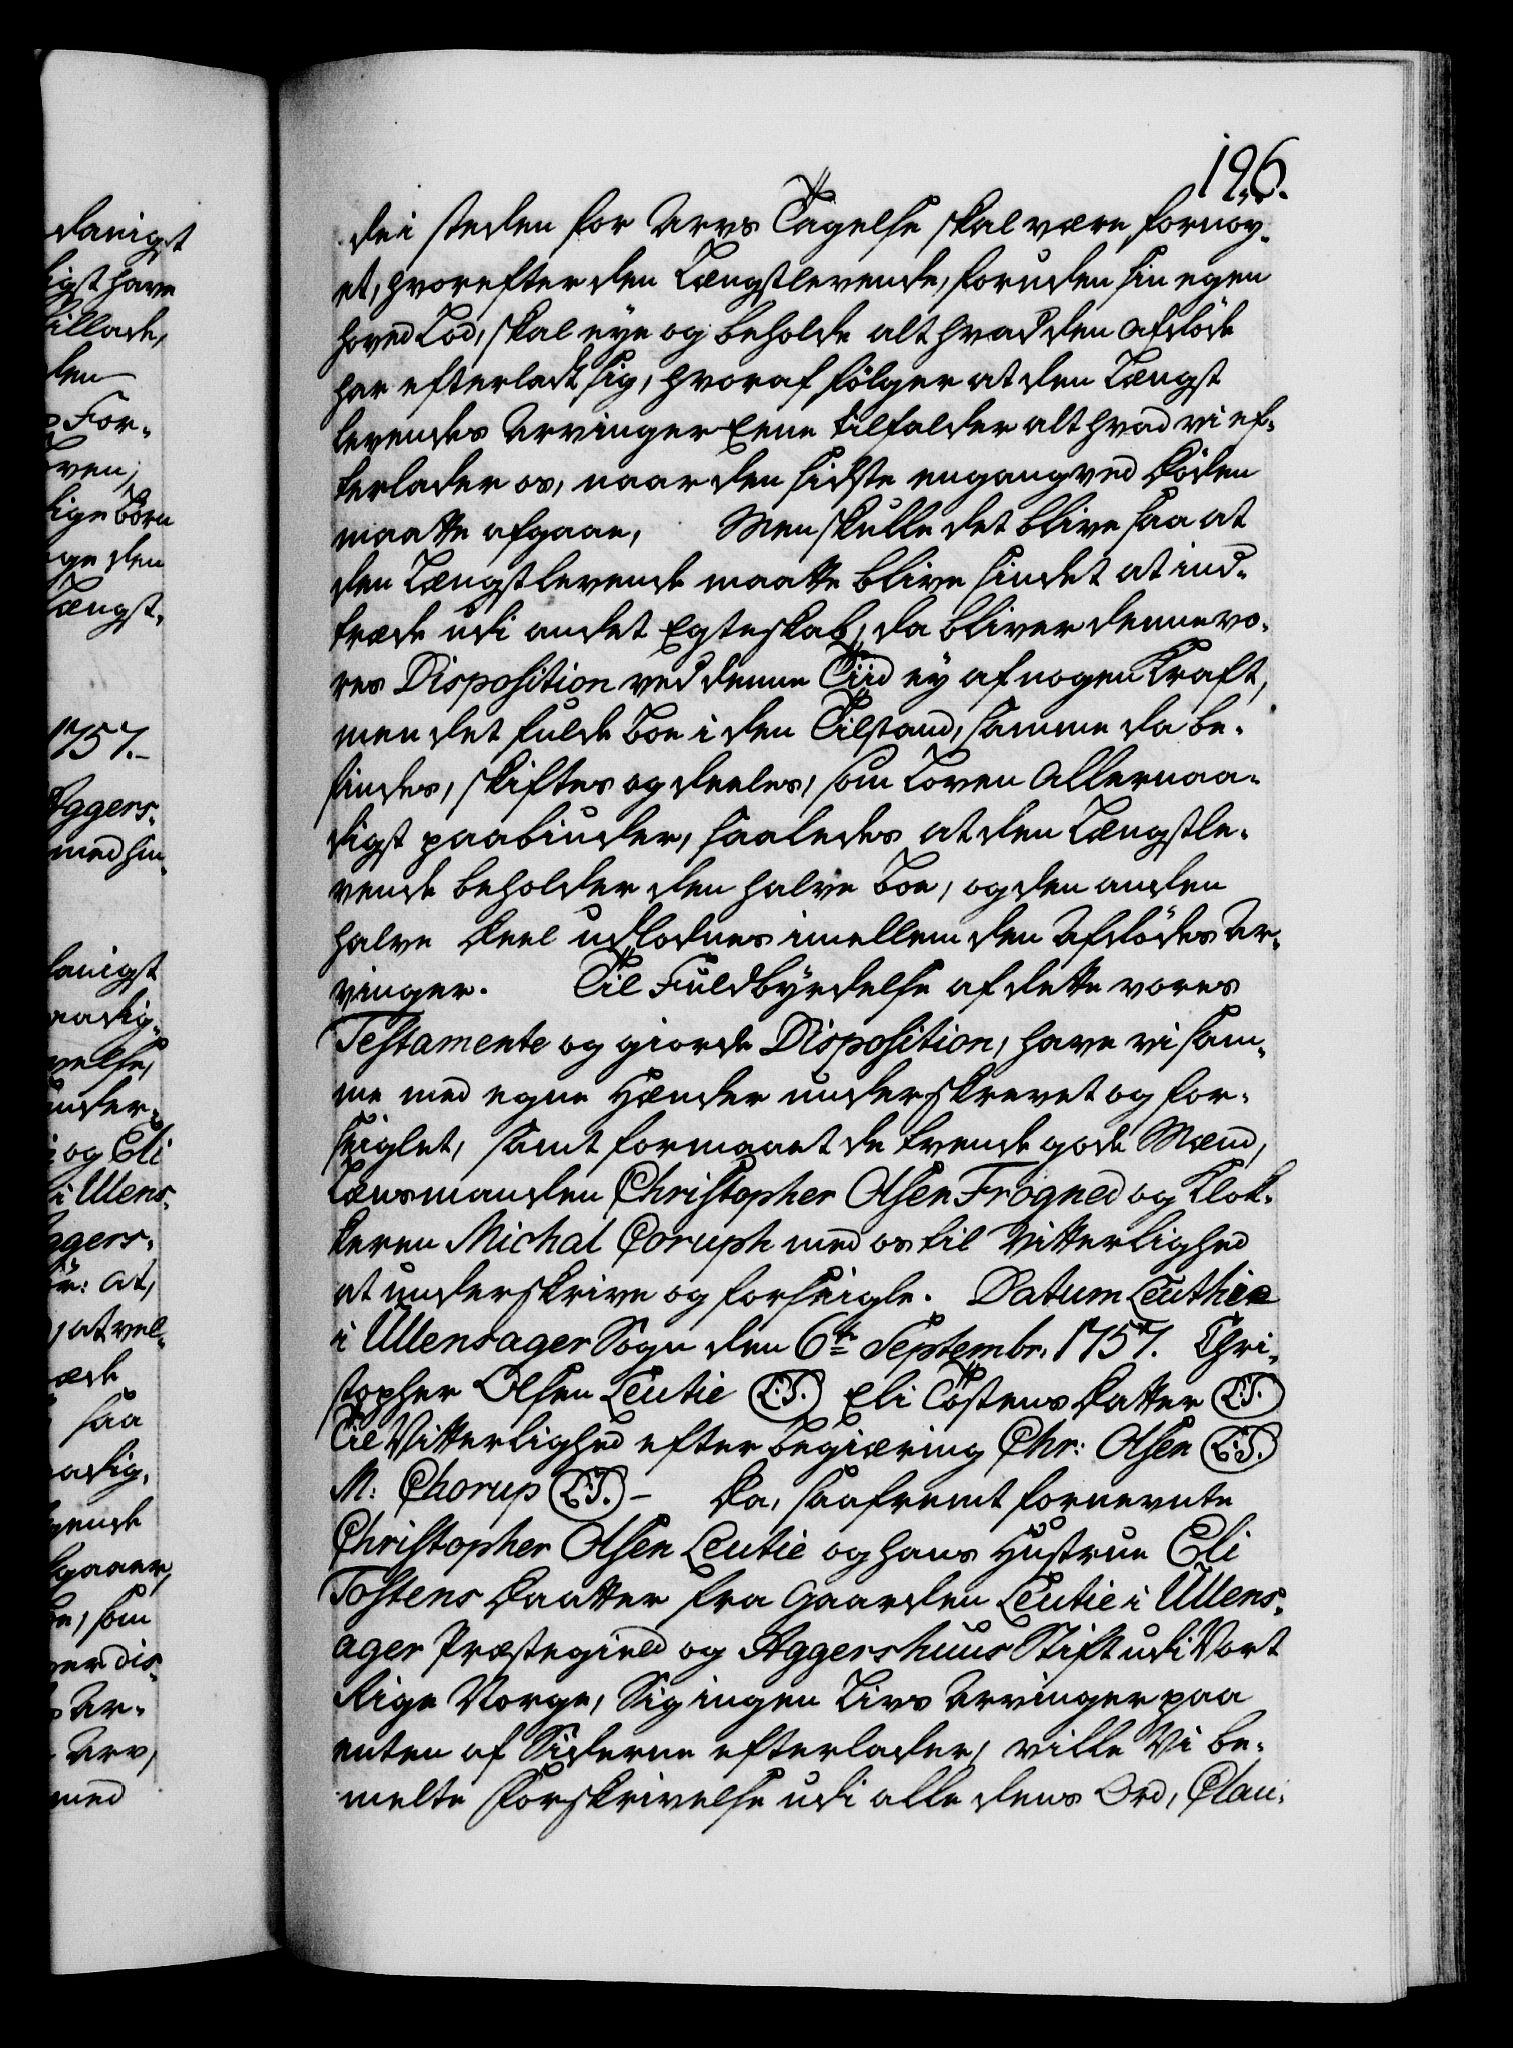 196.
de i steden for Arvs Tagelse skal være fornøy-
et, hvorefter den Længstlevende, foruden sin egen
hoved Lod, skal eye og beholde alt hvad den afdöde
har efterladt sig, hvoraf fölger at den Længst
levendes Arvinger Eene tilfalder alt hvad vi ef-
terlader os, naar den sidste engang ved Döden
maatte afgaae, Men skulle det blive saa at
den Længstlevende maatte blive sindet at ind-
træde udi andet Egteskab, da bliver denne vo-
res Disposition ved denne Tiid ey af nogen Kraft,
men det fulde Boe i den Tilstand, samme da be-
findes, skiftes og deeles, som Loven Allernaa-
digst paabiuder, saaledes at den Længstle-
vende beholder den halve Boe, og den anden
halve Deel udlodnes imellem den Afdödes Ar-
vinger. Til Fuldbyrdelse af dette vores
Testamente og giorde Disposition, have vi sam-
me med egne Hænder underskrevet og for-
seiglet, samt formaaet de tvende gode Mænd,
Lænsmanden Christopher Olsen Frogned og Klok-
keren Michal Coruph med os til Vitterlighed
at underskrive og forseigle. Datum Leuthie
i Ullensager Sogn den 6te Septembr. 1757. Chri-
stopher Olsen Leutie (L.S.) Eli Tostens Datter (L.S.)
Til Vitterlighed efter Begiæring Chr: Olsen (L.S.)
M: Chorup (L.S.) - Da, saafremt fornevnte
Christopher Olsen Leutie og hans Hustrue Eli
Tostens Daatter fra Gaarden Leutie i Ullens-
ager Præstegield og Aggershuus Stift udi Vort
Rige Norge, Sig ingen Livs Arvinger paa
enten af Siderne efterlader, ville Vi be-
melte Forskrivelse udi alle dens Ord, Clau-